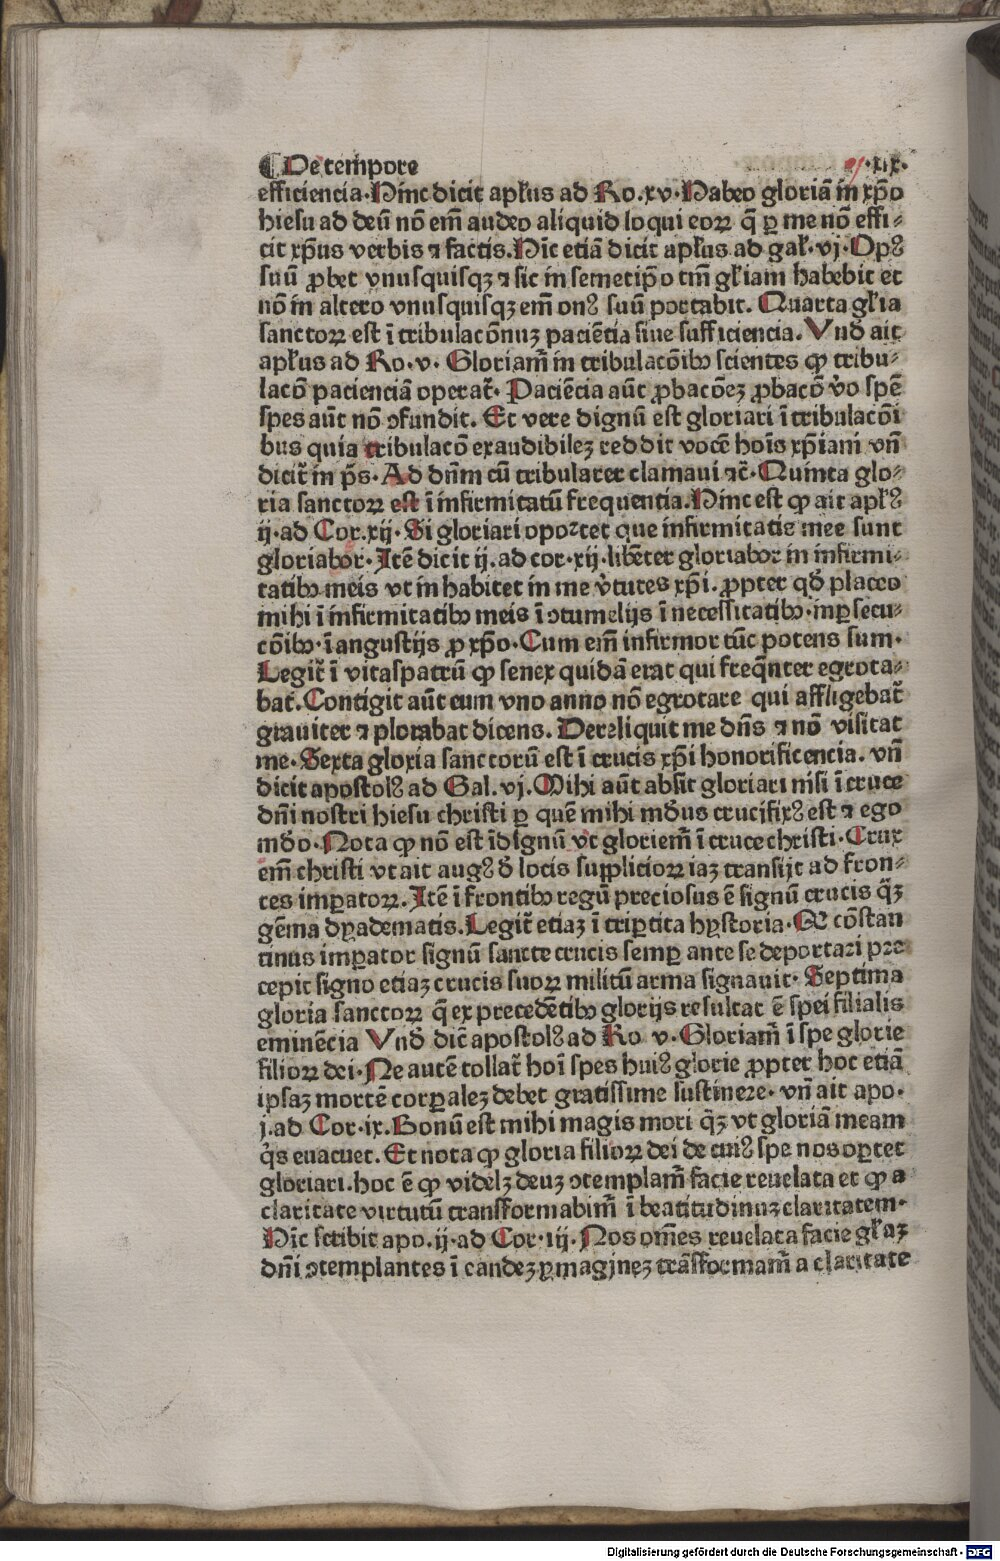 ¶ De tempore .xix.
efficiencia. Hinc dicit apl̕us ad Ro.xv. Habeo gloriā in xp̄o
hiesu ad deū nō em̄ audeo aliquid loqui eoꝝ q̄ ꝑ me nō effi-
cit xp̄us verbis ⁊ factis. Hīc etiā dicit apl̕us ad gal̕. vj. Opꝰ
suū ꝓbet vnusquisqꝫ ⁊ sic in semetip̄o tm̄ gl̕iam habebit et
nō in altero vnusquisqꝫ em̄ onꝰ suū portabit. Quarta gl̕ia
sanctoꝝ est ī tribulacōnuꝫ paciētia siue sufficiencia. Vnd̕ ait
apl̕us ad Ro.v. Gloriam̄ in tribulacōibꝰ scientes ꝙ tribu-
lacō pacienciā operat̄. Paciēcia aūt ꝓbacōeꝫ ꝓbacō v̕o spē
spes aūt nō ꝯfundit. Et vere dignū est gloriari ī tribulacōi
bus quia tribulacō exaudibileꝫ reddit vocē hoīs xp̄iani vn̄
dicit̄ in p̄s. Ad dn̄m cū tribularer clamaui ⁊c̄. Quinta glo-
ria sanctoꝝ est ī infirmitatū frequentia. Hinc est ꝙ ait apl̕ꝰ
ij.ad Cor.xij. Si gloriari oportet que infirmitatis mee sunt
gloriabor. Itē dicit ij.ad cor.xij. libēter gloriabor in infirmi-
tatibꝰ meis vt inhabitet in me v̕tutes xp̄i. ꝓpter qd̕ placeo
mihi ī infirmitatibꝰ meis ī ꝯtumelijs ī necessitatibꝰ. in ꝑsecu-
cōibꝰ. ī angustijs ꝓ xp̄o. Cum em̄ infirmor tūc potens sum.
Legit̄ ī vitaspatrū ꝙ senex quidā erat qui freq̄nter egrota-
bat. Contigit aūt eum vno anno nō egrotare qui affligebat̄
grauiter ⁊ plorabat dicens. Dereliquit me dn̄s ⁊ nō visitat
me. Sexta gloria sanctorū est ī crucis xp̄i honorificencia. vn̄
dicit apostolꝰ ad Gal.vj. Mihi aūt absit gloriari nisi ī cruce
dn̄i nostri hiesu christi ꝑ quē mihi md̕us crucifixꝰ est ⁊ ego
md̕o. Nota ꝙ nō est īdignū vt gloriem̄ ī cruce christi. Crux
em̄ christi vt ait augꝰ d̕ locis supplicioꝝ iaꝫ transijt ad fron-
tes imꝑatoꝝ. Itē ī frontibꝰ regū preciosus ē signū crucis q̄ꝫ
gēma dyadematis. Legit̄ etiaꝫ ī triꝑtita hystoria. Qꝙ cōstan
tinus imꝑator signū sancte crucis semꝑ ante se deportari pre
cepit signo etiaꝫ crucis suoꝝ militū arma signauit. Septima
gloria sanctoꝝ q̄ ex precedētibꝰ glorijs resultat ē spei filialis
eminēcia Vnd̕ dic̄ apostolꝰ ad Ro v. Gloriam̄ ī spe glorie
filioꝝ dei. Ne autē tollat̄ hoī spes huiꝰ glorie ꝓpter hoc etiā
ipsaꝫ mortē corꝑaleꝫ debet gratissime sustinere. vn̄ ait apo.
j.ad Cor.ix. Bonū est mihi magis mori q̄ꝫ vt gloriā meam
q̕s euacuet. Et nota ꝙ gloria filioꝝ dei de cuiꝰ spe nos oꝑtet
gloriari. hoc ē ꝙ videlꝫ deuꝫ ꝯtemplam̄ facie reuelata et ꝙ a
claritate virtutū transformabim̄ ī beatitudinuꝫ claritatem.
Hīc scribit apo.ij.ad Cor.iij. Nos om̄es reuelata facie gl̕aꝫ
dn̄i ꝯtemplantes ī eandeꝫ ymagineꝫ trāsformam̄ a claritate
Digitalisierung gefördert durch die Deutsche Forschungsgemeinschaft - DFG